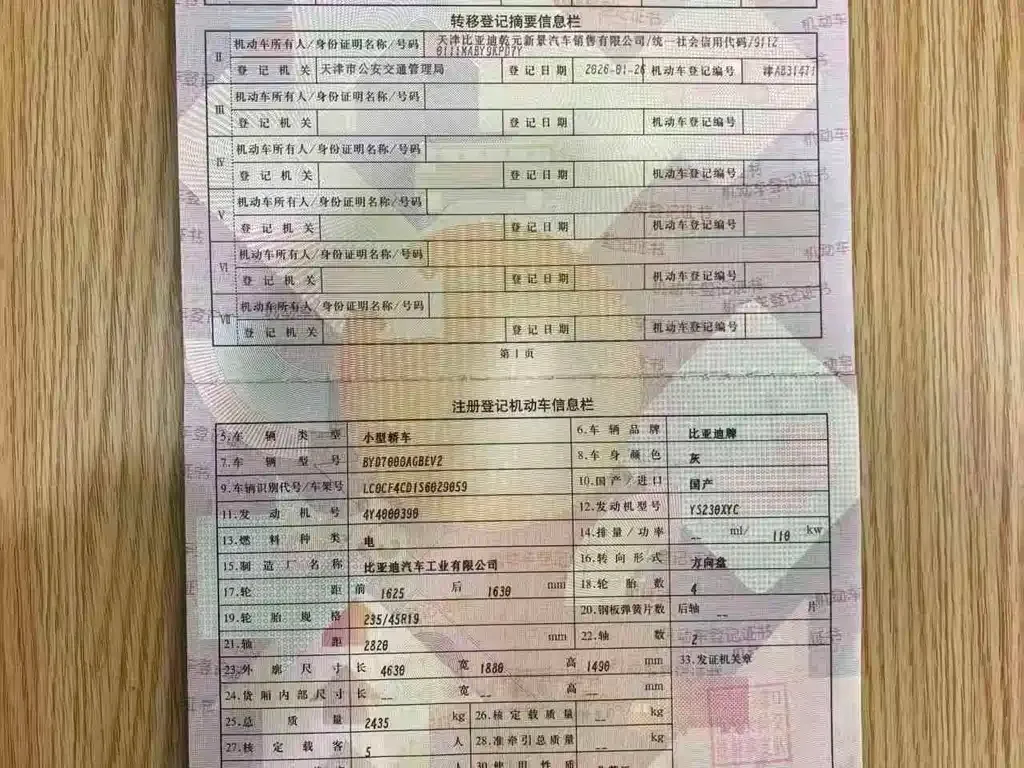 转移登记摘要信息栏
Ⅱ 机动车所有人/身份证明名称/号码 天津比亚迪乾元新景汽车销售有限公司/统一社会信用代码/9112
0111MABY9KPD7Y
登记机关 天津市公安交通管理局 登记日期 2026-01-26 机动车登记编号 津AB31471
Ⅲ 机动车所有人/身份证明名称/号码
登记机关 登记日期 机动车登记编号
Ⅳ 机动车所有人/身份证明名称/号码
登记机关 登记日期 机动车登记编号
Ⅴ 机动车所有人/身份证明名称/号码
登记机关 登记日期 机动车登记编号
Ⅵ 机动车所有人/身份证明名称/号码
登记机关 登记日期 机动车登记编号
Ⅶ 机动车所有人/身份证明名称/号码
登记机关 登记日期 机动车登记编号
第1页
注册登记机动车信息栏
5.车辆类型 小型轿车 6.车辆品牌 比亚迪牌
7.车辆型号 BYD7000AGBEV2 8.车身颜色 灰
9.车辆识别代号/车架号 LC0CF4CD1S6029059 10.国产/进口 国产
11.发动机号 4Y4000390 12.发动机型号 YS230XYC
13.燃料种类 电 14.排量/功率 -- ml/ 110 kw
15.制造厂名称 比亚迪汽车工业有限公司 16.转向形式 方向盘
17.轮距 前 1625 后 1630 mm 18.轮胎数 4
19.轮胎规格 235/45R19 20.钢板弹簧片数 后轴 -- 片
21.轴距 2820 mm 22.轴数 2
23.外廓尺寸 长 4630 宽 1880 高 1490 mm 33.发证机关章
24.货厢内部尺寸 长 -- 宽 -- 高 -- mm
25.总质量 2435 kg 26.核定载质量 -- kg
27.核定载客 5 人 28.准牵引总质量 -- kg
人 30.使用性质